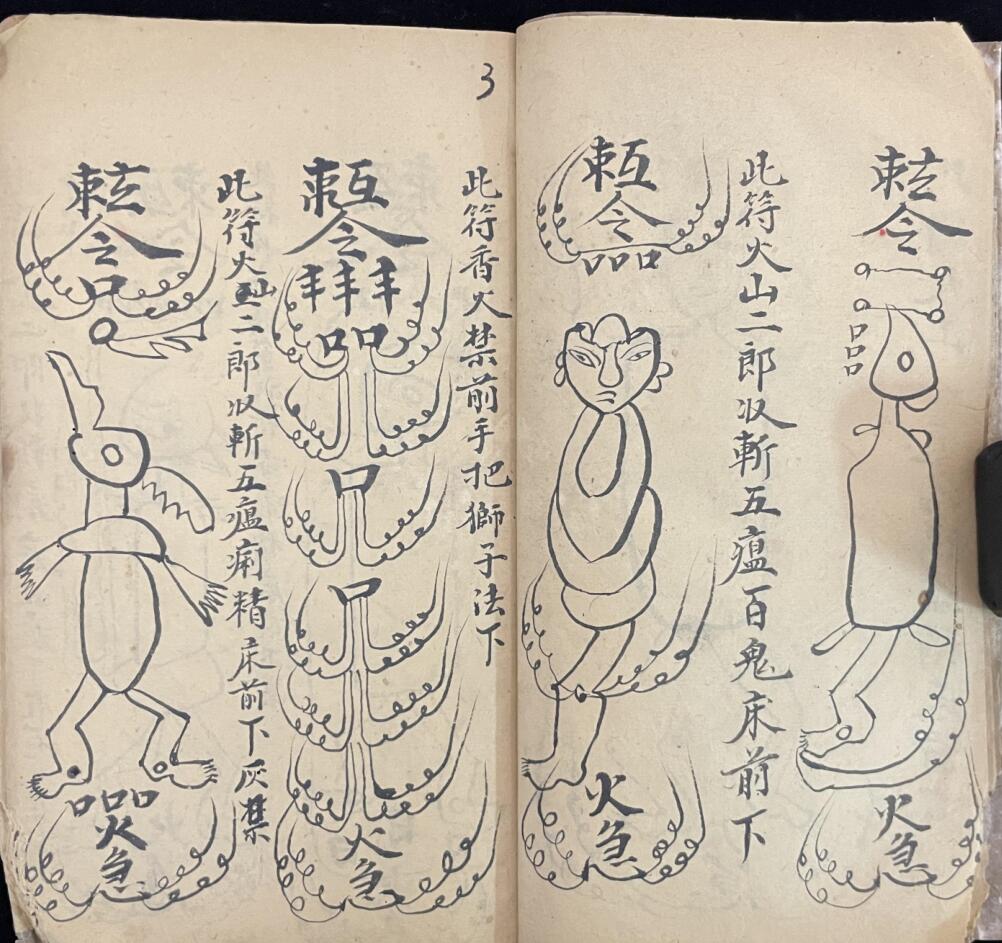 令
口口口
火急
此符火山二郎収斬五瘟百鬼床前下
令
口口口
火急
3
此符香火禁前手把獅子法下
令
丰丰丰
口口
口
口
火急
此符火山二郎収斬五瘟痢精床前下灰禁
令
口
口口口
火急